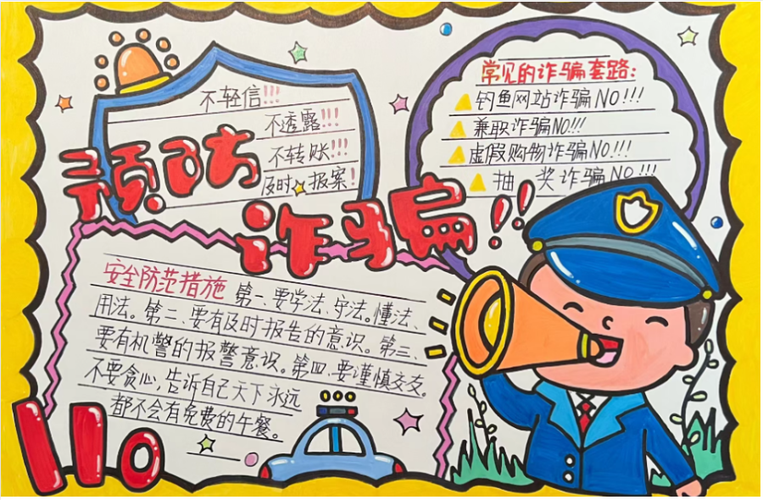 不轻信!!!
不透露!!!
不转账!!!
及时报案!
常见的诈骗套路:
钓鱼网站诈骗NO!!!
兼职诈骗NO!!!
虚假购物诈骗NO!!!
抽奖诈骗NO!!!
预防
诈骗!!
安全防范措施 第一、要学法、守法。懂法、
用法。第二、要有及时报告的意识。第三、
要有机警的报警意识。第四、要谨慎交友。
不要贪心,告诉自己天下永远
都不会有免费的午餐。
110